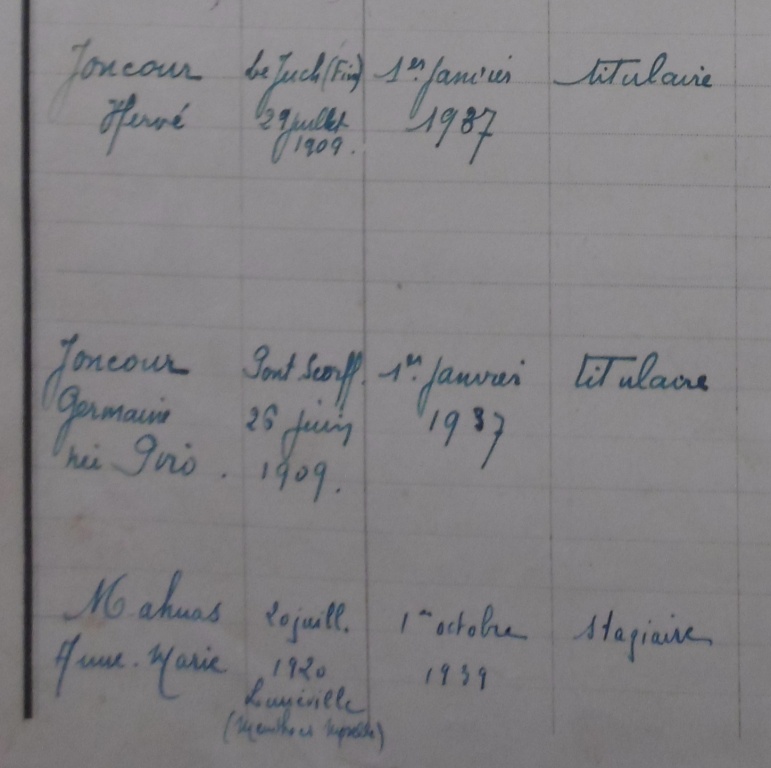 Joncour Le Juch (Fin) 1er Janvier titulaire
Hervé 29 juillet 1937
1909.
Joncour Pont Scorff. 1er Janvier titulaire
Germaine 26 juin 1937
née Piriò. 1909.
Mahuas 20 juill. 1er octobre stagiaire
Anne-Marie 1920 1939
Lunéville
(Meurthe et Moselle)